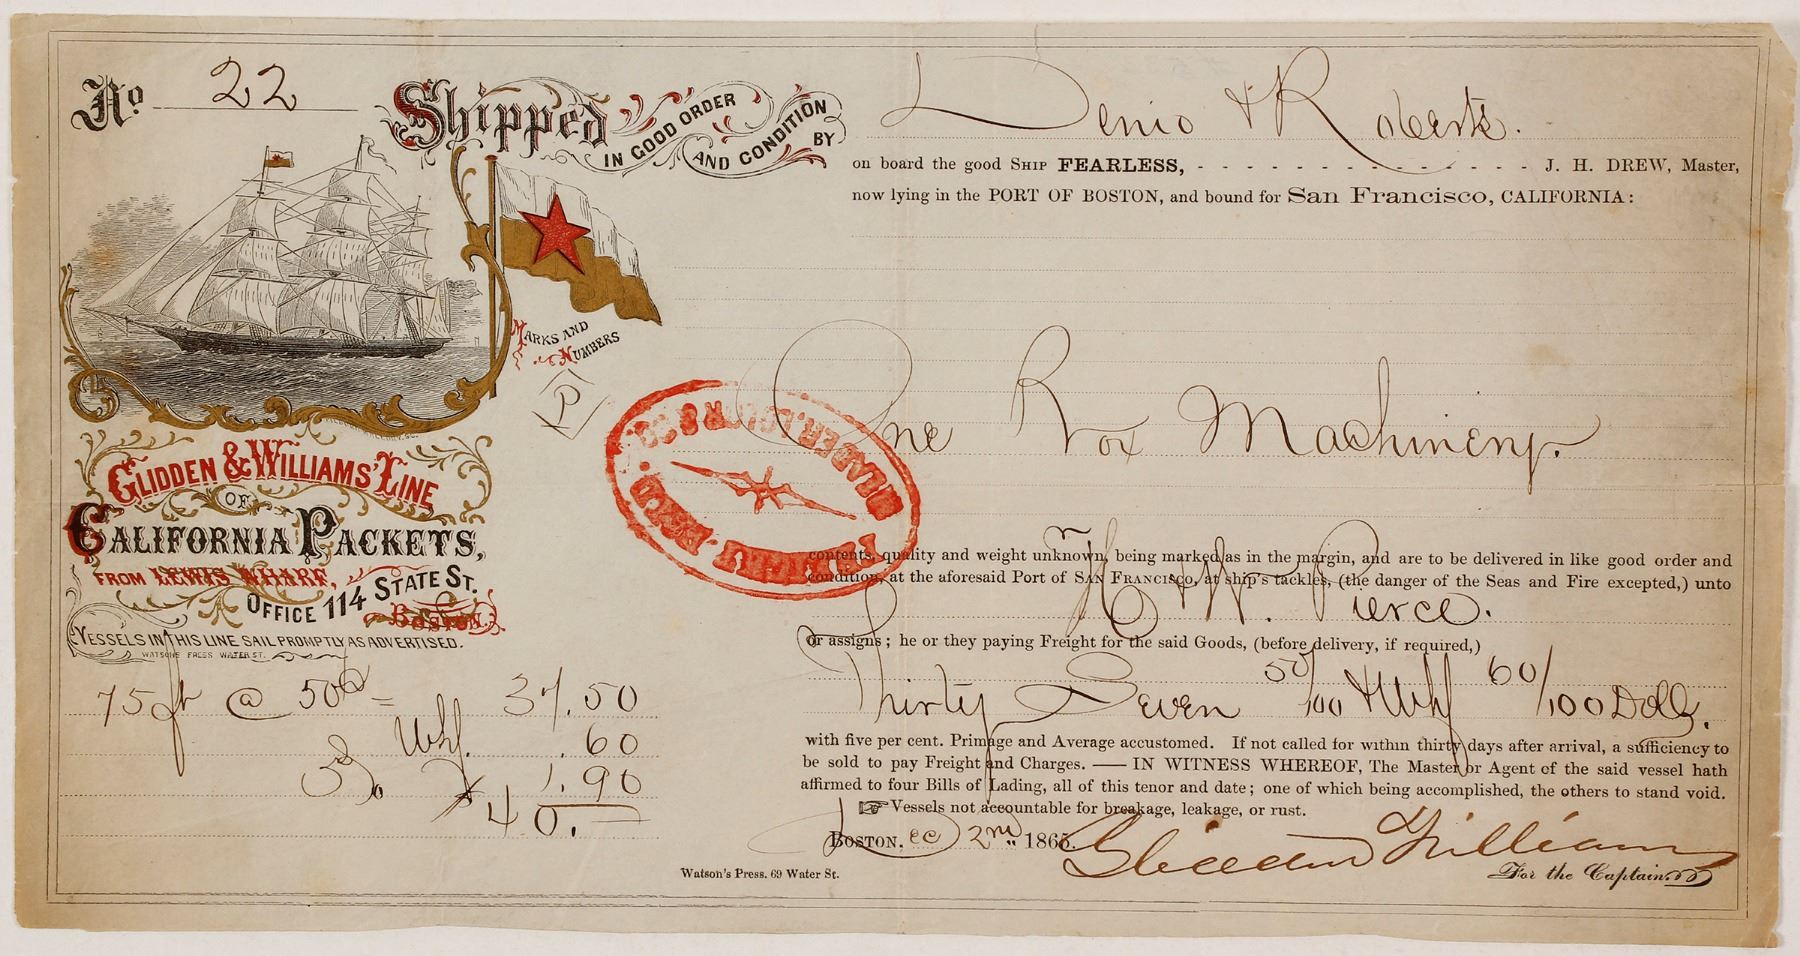 No 22
Shipped IN GOOD ORDER AND CONDITION BY
Denio & Roberts.
on board the good SHIP FEARLESS, - - - - - - - - - - - - - - J. H. DREW, Master,
now lying in the PORT OF BOSTON, and bound for San Francisco, CALIFORNIA:
MARKS AND NUMBERS
P
One Box Machinery.
GLIDDEN & WILLIAMS' LINE
OF
CALIFORNIA PACKETS,
FROM LEWIS WHARF,
OFFICE 114 STATE ST.
BOSTON.
VESSELS IN THIS LINE SAIL PROMPTLY AS ADVERTISED.
WATSONS PRESS WATER ST.
contents, quality and weight unknown, being marked as in the margin, and are to be delivered in like good order and
condition, at the aforesaid Port of SAN FRANCISCO, at ship's tackles, (the danger of the Seas and Fire excepted,) unto
H. & W. Pierce.
or assigns; he or they paying Freight for the said Goods, (before delivery, if required,)
Thirty Seven 50/100 & Whf 60/100 Dolls.
with five per cent. Primage and Average accustomed. If not called for within thirty days after arrival, a sufficiency to
be sold to pay Freight and Charges. — IN WITNESS WHEREOF, The Master or Agent of the said vessel hath
affirmed to four Bills of Lading, all of this tenor and date; one of which being accomplished, the others to stand void.
☞ Vessels not accountable for breakage, leakage, or rust.
75 ft @ 50c = 37.50
Whf. .60
1.90
40.
BOSTON. Dec 2nd 1865.
Glidden & Williams
For the Captain.
Watson's Press. 69 Water St.